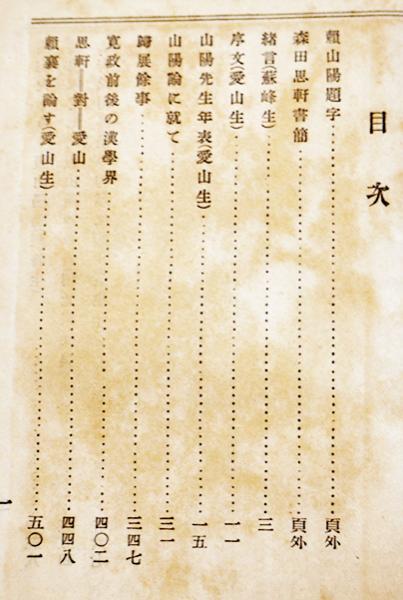 目次
頼山陽題字……頁外
森田思軒書簡……頁外
緒言(蘇峰生)……三
序文(愛山生)……一一
山陽先生年表(愛山生)……一五
山陽論に就て……三一
歸展餘事……三四七
寛政前後の漢學界……四〇二
思軒―對―愛山……四四八
頼襄を論ず(愛山生)……五〇一
一